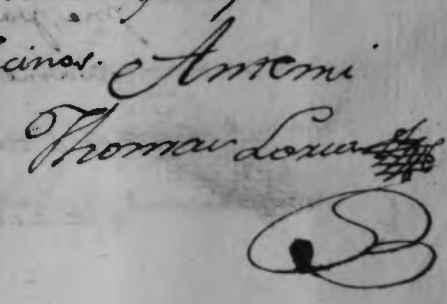 cinos. Antemi
Thomas Loria